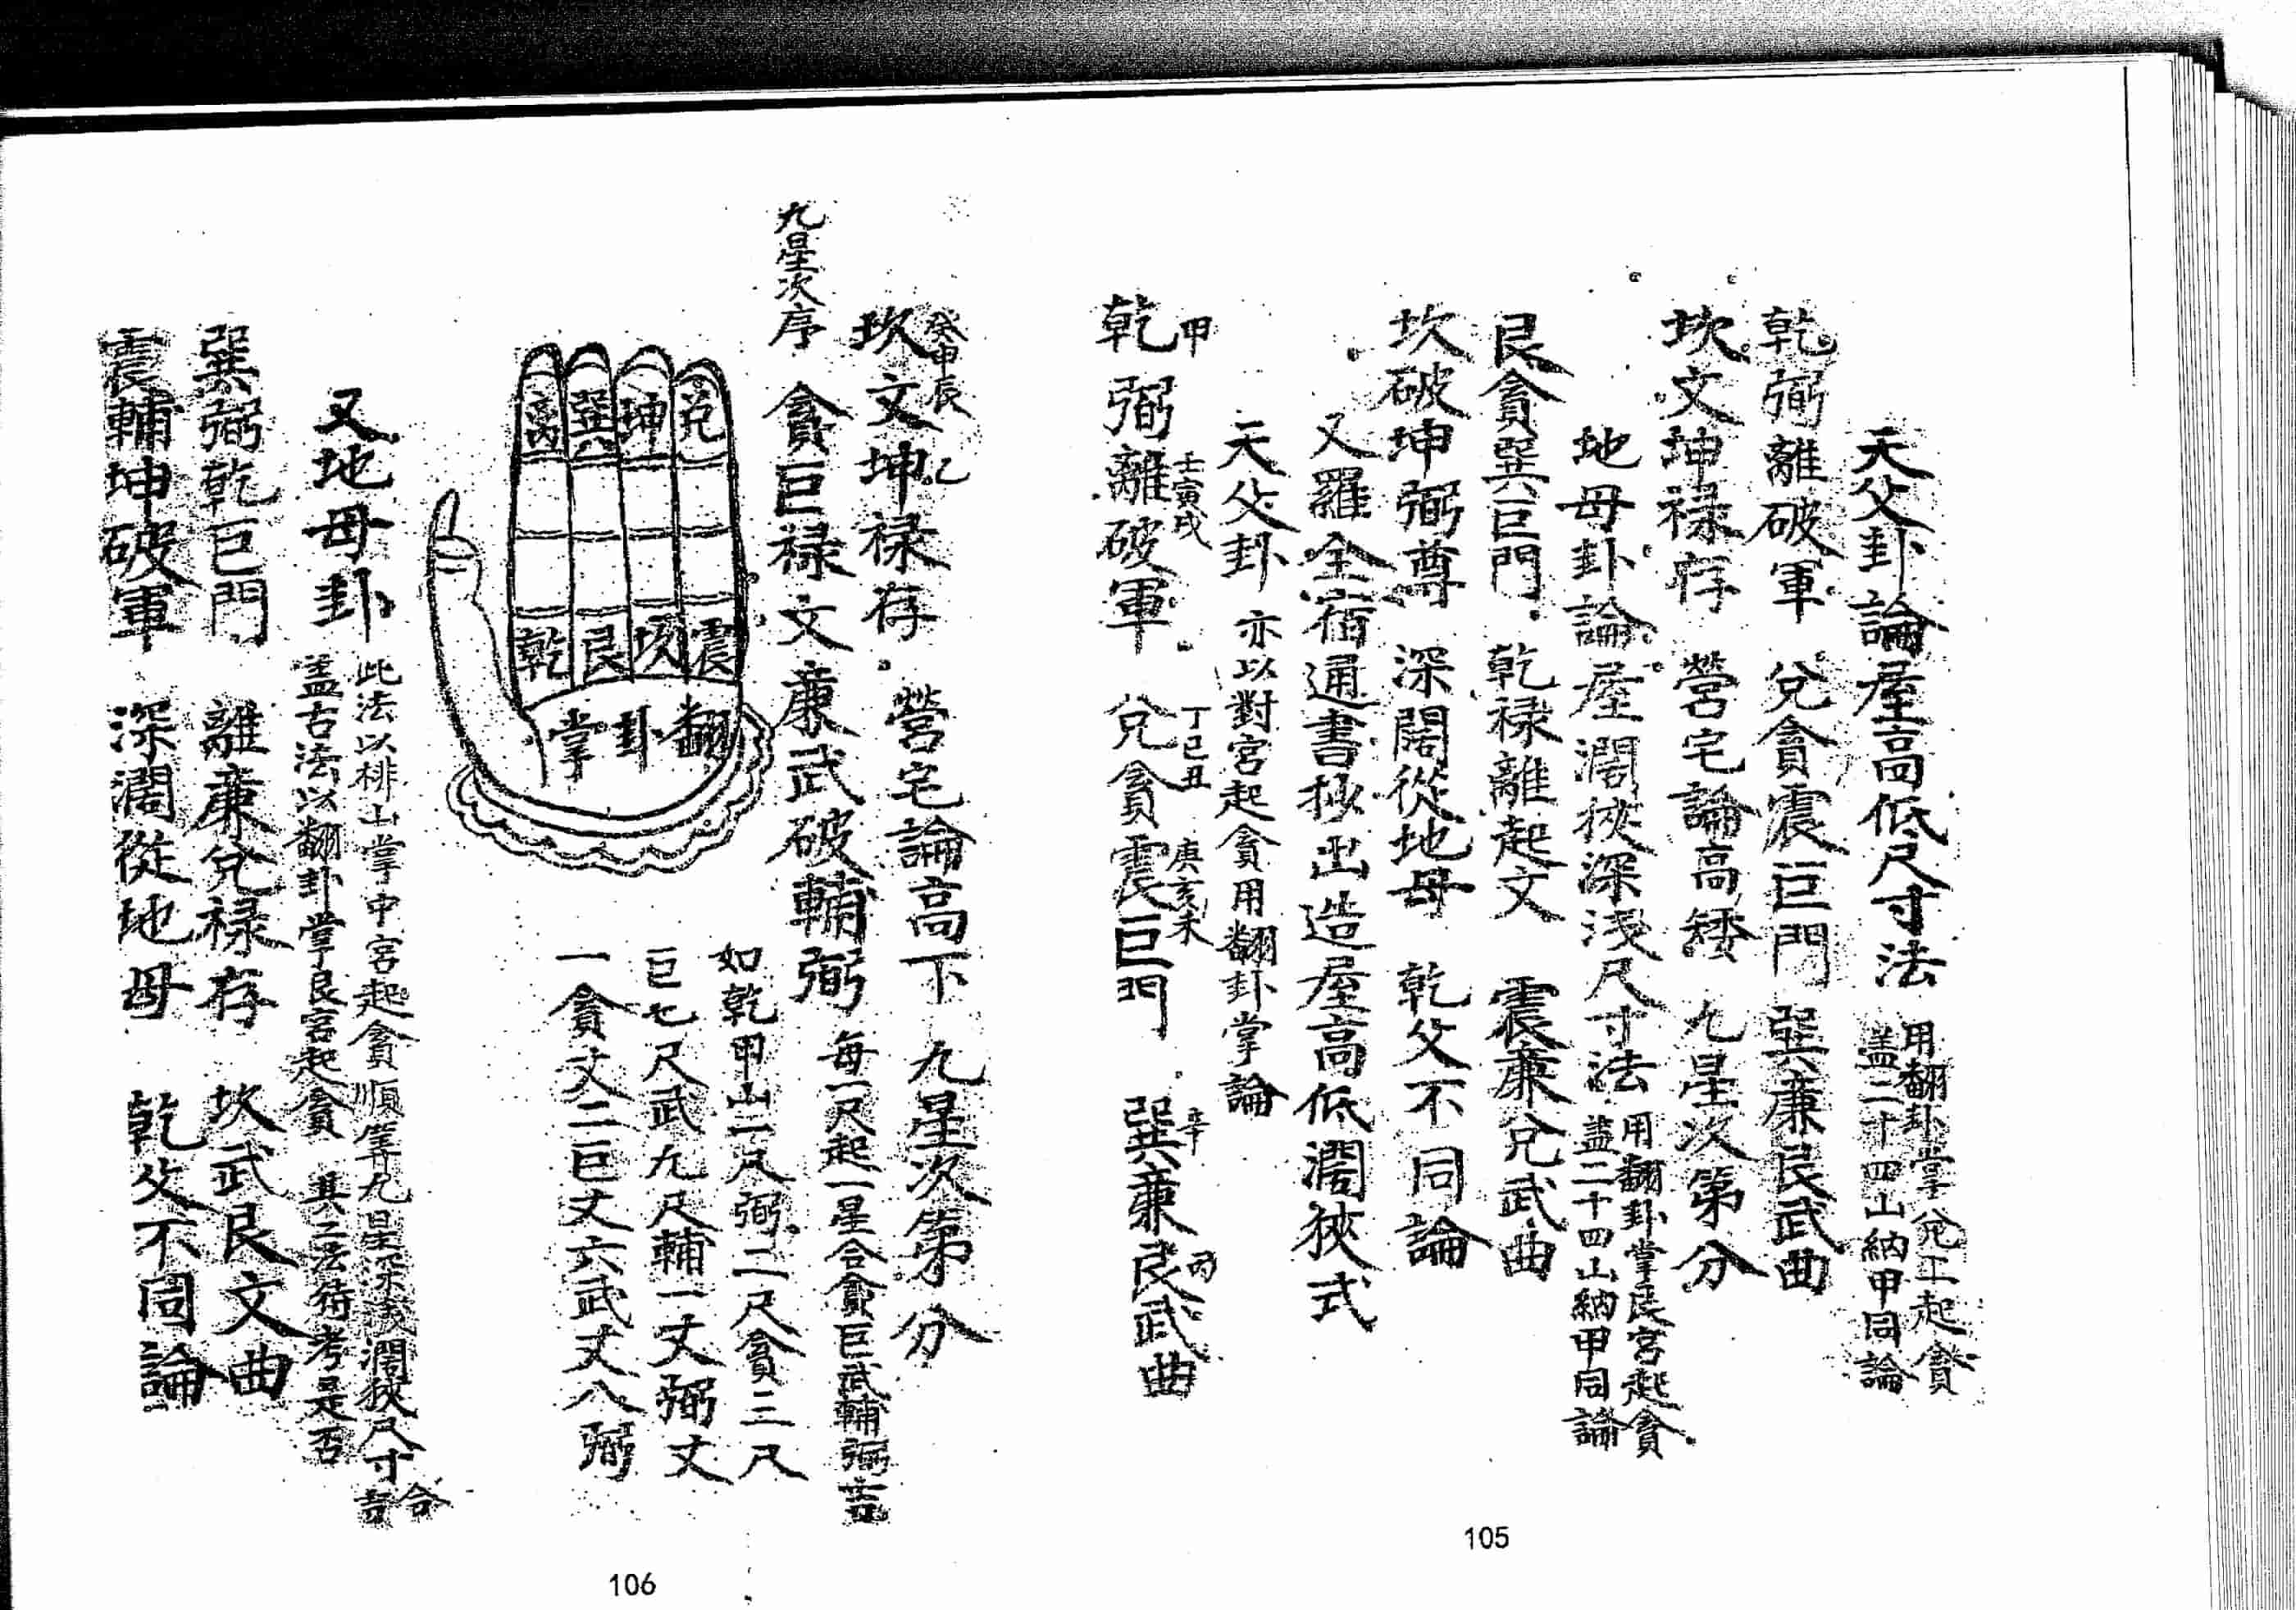 天父卦論屋高低尺寸法
用翻卦掌兌工起貪
盖二十四山納甲同論
乾弼離破軍 兌貪震巨門 巽廉艮武曲
坎文坤禄存 營宅論高矮 九星次第分
地母卦論屋濶狹深淺尺寸法
用翻卦掌艮宮起貪
盖二十四山納甲同論
艮貪巽巨門 乾禄離起文 震廉兌武曲
坎破坤弼尊 深闊從地母 乾父不同論
又羅全宿通書抄出造屋高低濶狹式
天父卦 亦以對宮起貪用翻卦掌論
甲 壬寅戌 丁巳丑 庚亥未 辛 丙
乾弼離破軍 兌貪震巨門 巽廉艮武曲
105
癸申辰 乙
坎文坤禄存 營宅論高下 九星次第分
九星次序 貪巨禄文廉武破輔弼
每一尺起一星合貪巨武輔弼吉
如乾甲山一尺弼二尺貪三尺
巨七尺武九尺輔一丈弼丈
一貪丈二巨丈六武丈八弼
離 巽 坤 兌
乾 艮 坎 震
翻卦掌
又地母卦
此法以排山掌中宮起貪順筭九星深淺濶狹尺寸合吉
盖古法以翻卦掌艮宮起貪 其二法待考是否
巽弼乾巨門 離廉兌禄存 坎武艮文曲
震輔坤破軍 深濶從地母 乾父不同論
106